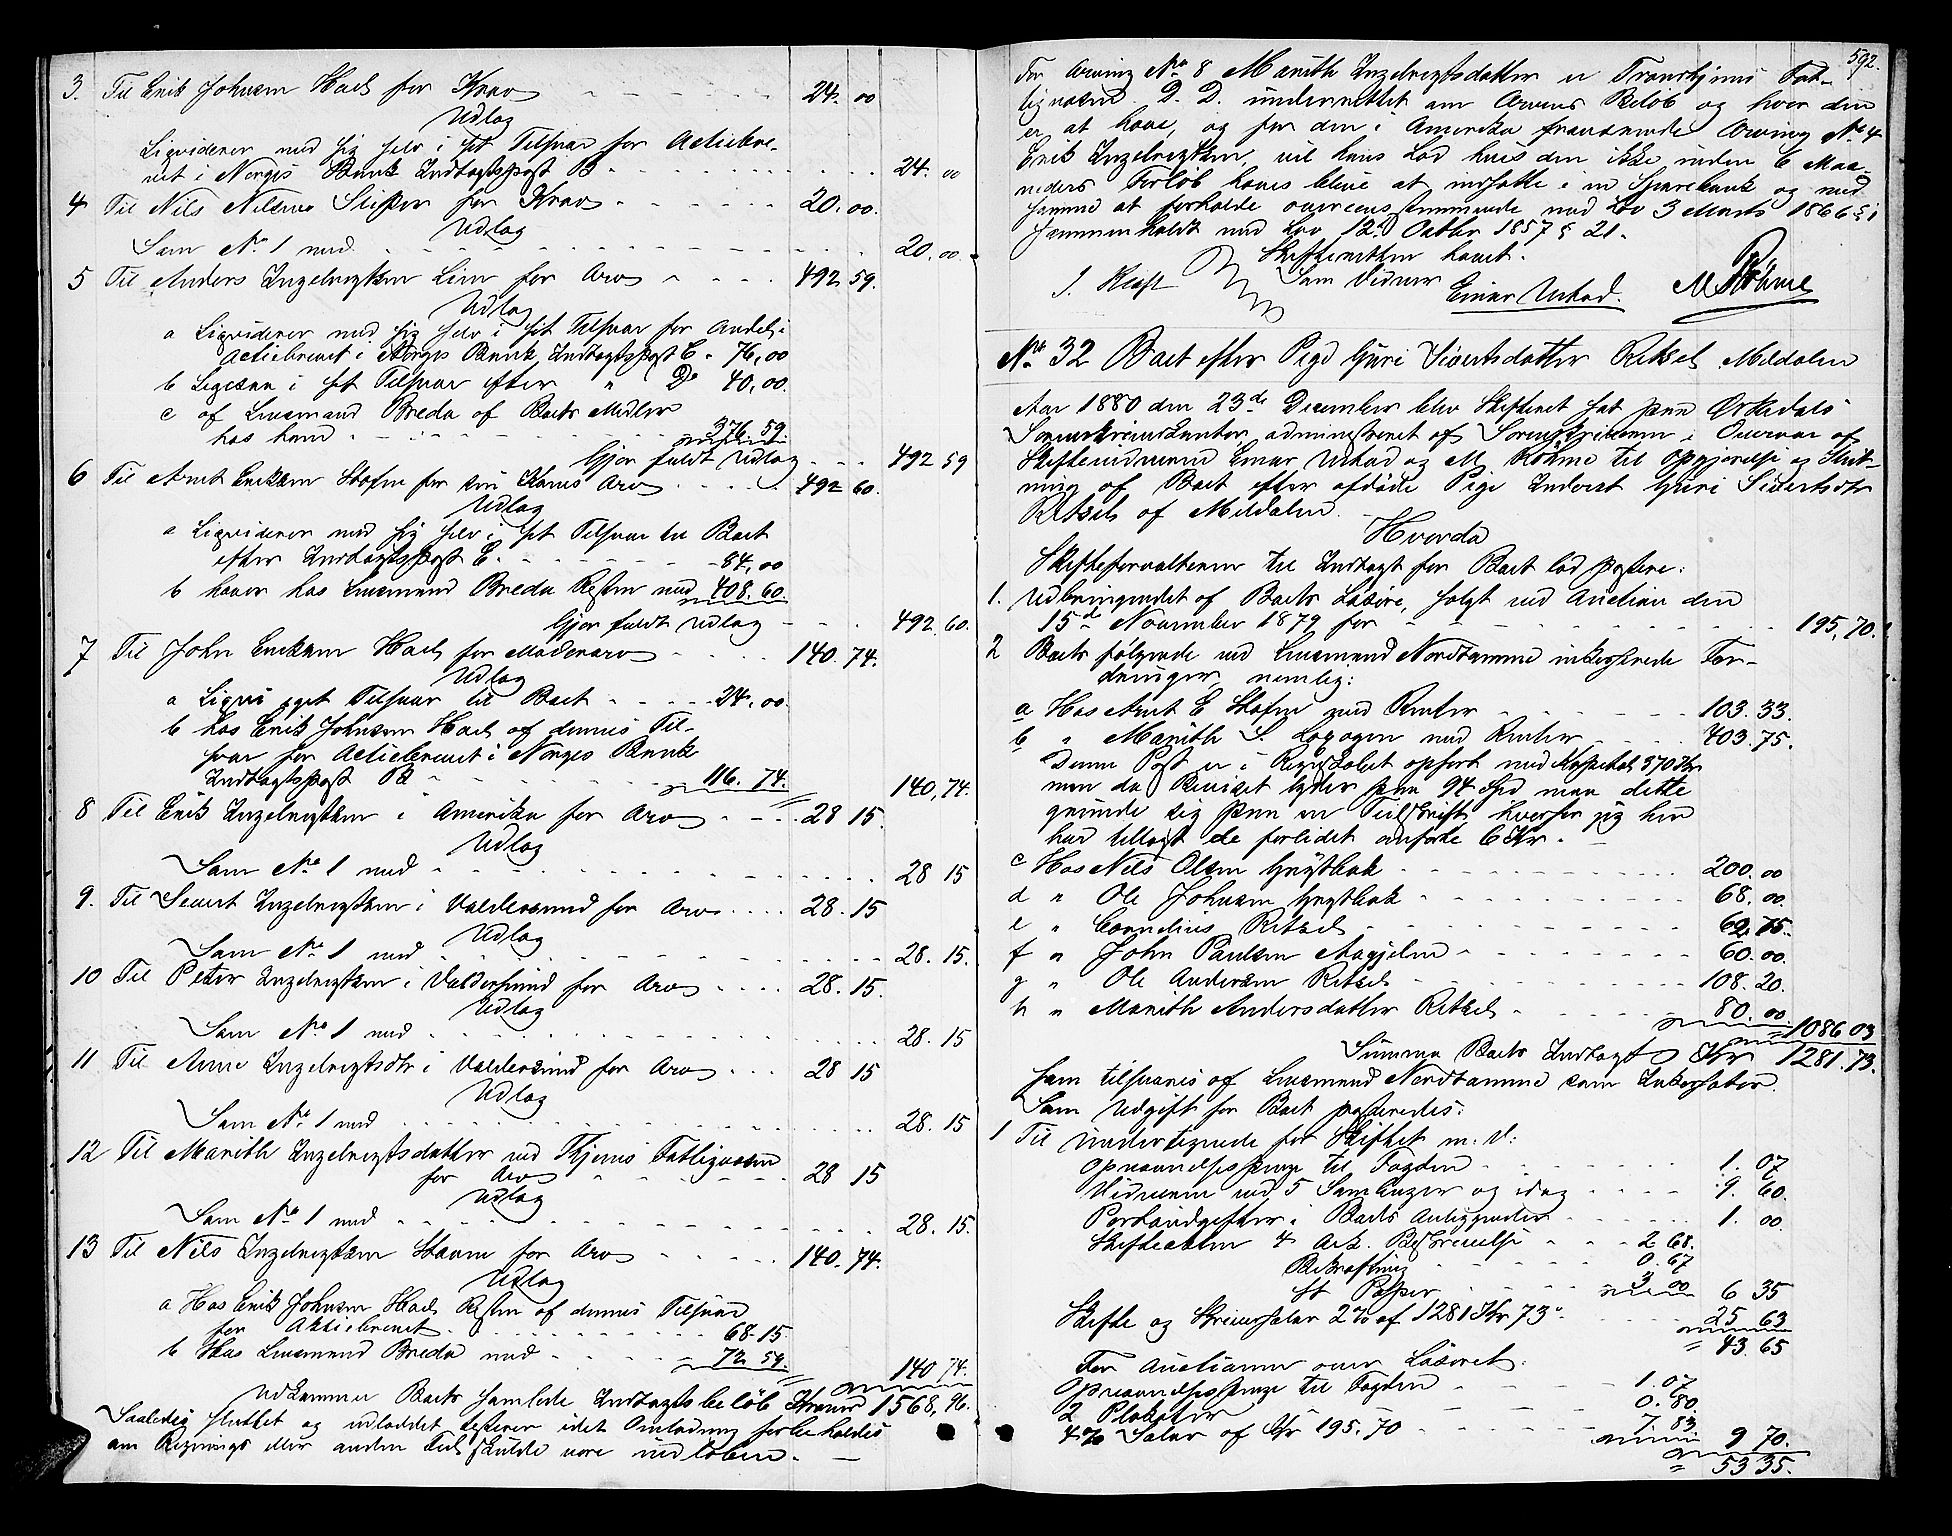 3. Til Erik Johnsen Hoel for Krav - - - 24. 00
Udlag
Liqviderer med sig selv i sit Tilsvar for Actiebre-
vet i Norges Bank Indtægtspost B - - - 24. 00
4 Til Nils Nilsen for Krav - - - 20. 00.
Udlag
Som No 1 med - - - 20. 00
5 Til Anders Ingebrigtsen Lien for Arv - - - 492 59.
Udlag
a Liqviderer med sig selv i sit Tilsvar for Andel i
Actiebrevet i Norges Bank, Indtægtspost C - 76,00
b Ligesaa i sit Tilsvar efter " Do 40,00.
c af Lensmand Breda af Boets Midler
hos ham - - - 376. 59
Gjør fuldt Udlag - - - 492 59
6 Til Arnt Eriksen for sin Kones Arv - - - 492 60.
Udlag
a Liqviderer med sig selv i sit Tilsvar til Boet
efter Indtægtspost E. - - - 84,00
b haver hos Lensmand Breda Resten med 408. 60.
Gjør fuldt Udlag - - - 492. 60.
7 Til John Eriksen Hoel for Mødrenarv - - - 140. 74.
Udlag
a Liqv: eget Tilsvar til Boet - - - 24. 00.
b hos Erik Johnsen Hoel af dennes Til-
svar for Actiebrevet i Norges Bank
Indtægtspost B - - - 116. 74. 140,74.
8 Til Erik Ingebrigtsen i Amerika for Arv - - - 28 15.
Udlag
Som No 1 med - - - 28 15
9. Til Sivert Ingebrigtsen i Valdersund for Arv - - - 28. 15
Udlag
Som No 1 med - - - 28. 15.
10 Til Peter Ingebrigtsen i Valdersund for Arv - - - 28. 15.
Udlag
Som No 1 med - - - 28. 15
11 Til Anne Ingebrigtsdtr i Valdersund for Arv - - - 28 15
Udlag
Som No 1 med - - - 28 15
12 Til Marith Ingebrigtsdatter ved Thjems Fattigvæsen
for Arv - - - 28 15
Udlag
Som No 1 med - - - 28. 15.
13 Til Nils Ingebrigtsen for Arv - - - 140. 74.
Udlag
a Hos Erik Johnsen Hoel Resten af dennes Tilsvar
for Aktiebrevet - - - 68. 15
b Hos Lensmand Breda med - - - 72. 59. 140 74.
Udkommer Boets samlede Indtægtsbeløb Kroner 1568, 96.
Saaledes sluttet og udloddet testerer idet Omlodning forbeholdes
om Regnings eller anden Feil skulde være indløben. —
592.
For Arving No 8 Marith Ingebrigtsdatter er Tronhjems Fat-
tigvæsen D. D. underrettet om Arvens Beløb og hvor den
er at hæve, og for den i Amerika fraværende Arving No 4
Erik Ingebrigtsen, vil hans Lod hvis den ikke inden 6 Maa-
neders Forløb hæves blive at indsætte i en Sparebank og med
samme at forholde overensstemmende med Lov 3 Marts 1866 § 1
sammenholdt med Lov 12. Octbr 1857 § 21.
Skifteretten hævet.
Som Vidner
Einar Urstad. M Röhme
No 32 Boet efter Pige Guri Sivertsdatter Retsel Meldalen
Aar 1880 den 23de December blev Skifteret sat paa Orkedals
Sorenskriverkontor administreret af Sorenskriveren i Overvær af
Skiftevidnerne Einar Urstad og M. Röhme til Opgjørelse og Slut-
ning af Boet efter afdøde Pige Inderst Guri Sivertsdtr
Retsel af Meldalen.
Hvorda
Skifteforvalteren til Indtægt for Boet lod postere:
1. Udbringendet af Boets Løsøre, solgt ved Auction den
15de November 1879 for - - - 195,70.
2 Boets følgende ved Lensmand Nordtømme inkasserede For-
dringer, nemlig:
a Hos Arnt E med Renter - - - 103. 33.
b " Marith S. med Renter - - - 403. 75.
Denne Post er i Registrolet opført med Kapital 370 Kr
men da Beviset lyder paa 94 Spd maa dette
grunde sig paa en Feilskrift, hvorfor jeg her
har tillagt de forlidet anførte 6 Kr.
c Hos Nils Olsen - - - 200. 00
d " Ole Johnsen - - - 68. 00.
e " Cornelius Retsel - - - 62. 75.
f " John Paulsen - - - 60. 00.
g " Ole Andersen Retsel - - - 108. 20.
h " Marith Andersdatter Retsel - - - 80. 00. 1086 03
Summa Boets Indtægt Kr 1281. 73.
som tilsvares af Lensmand Nordtømme som Inkassator.
Som Udgift for Boet posteredes:
1 Til Undertegnede for Skiftet m. v:
Opnævnelsespenge til Fogden - - - 1. 07
Vidnerne ved 5 Samlinger og idag - - - 9. 60.
Portoudgifter i Boets Anliggender - - - 1. 00
Skifteakten 4 Ark. Beskrivelse - - - 2 68.
Bekræftning - - - 0. 67
st Papir - - - 3. 00 6 35
Skifte og Skriversalær 2% af 1281 Kr 73 - - - 25 63
43. 65
For Auctionen over Løsøret:
Opnævnelsespenge til Fogden - - - 1. 07
2 Plakater - - - 0. 80.
4% Salær af Kr 195. 70 - - - 7. 83 9 70.
53 35.